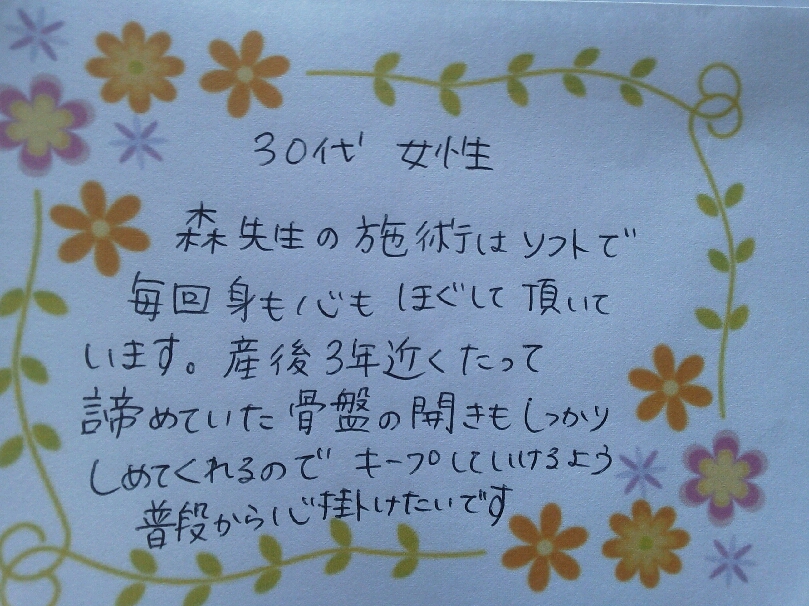 30代 女性
森先生の施術はソフトで
毎回身も心もほぐして頂いて
います。産後3年近くたって
諦めていた骨盤の開きもしっかり
しめてくれるのでキープしていけるよう
普段から心掛けたいです